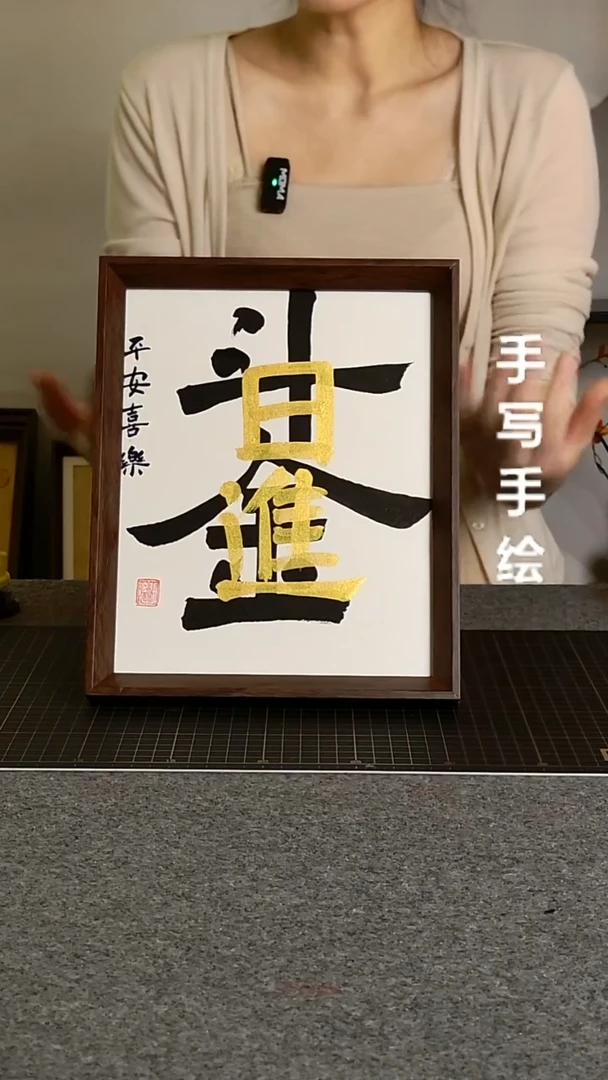 平安喜樂
日進
斗金
手写手绘